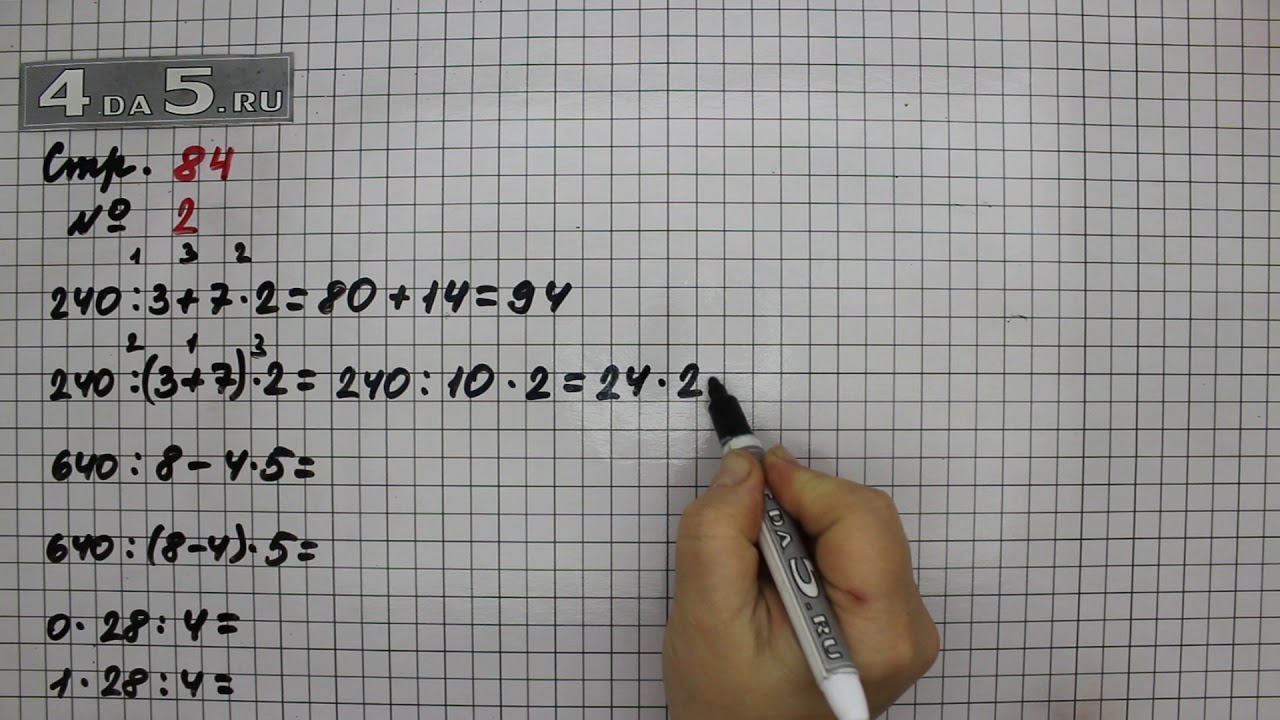 4DA5.RU
Стр. 84
№ 2
1 3 2
240:3+7·2=80+14=94
2 1 3
240:(3+7)·2=240:10·2=24·2
640:8-4·5=
640:(8-4)·5=
0·28:4=
1·28:4=
DA5.RU